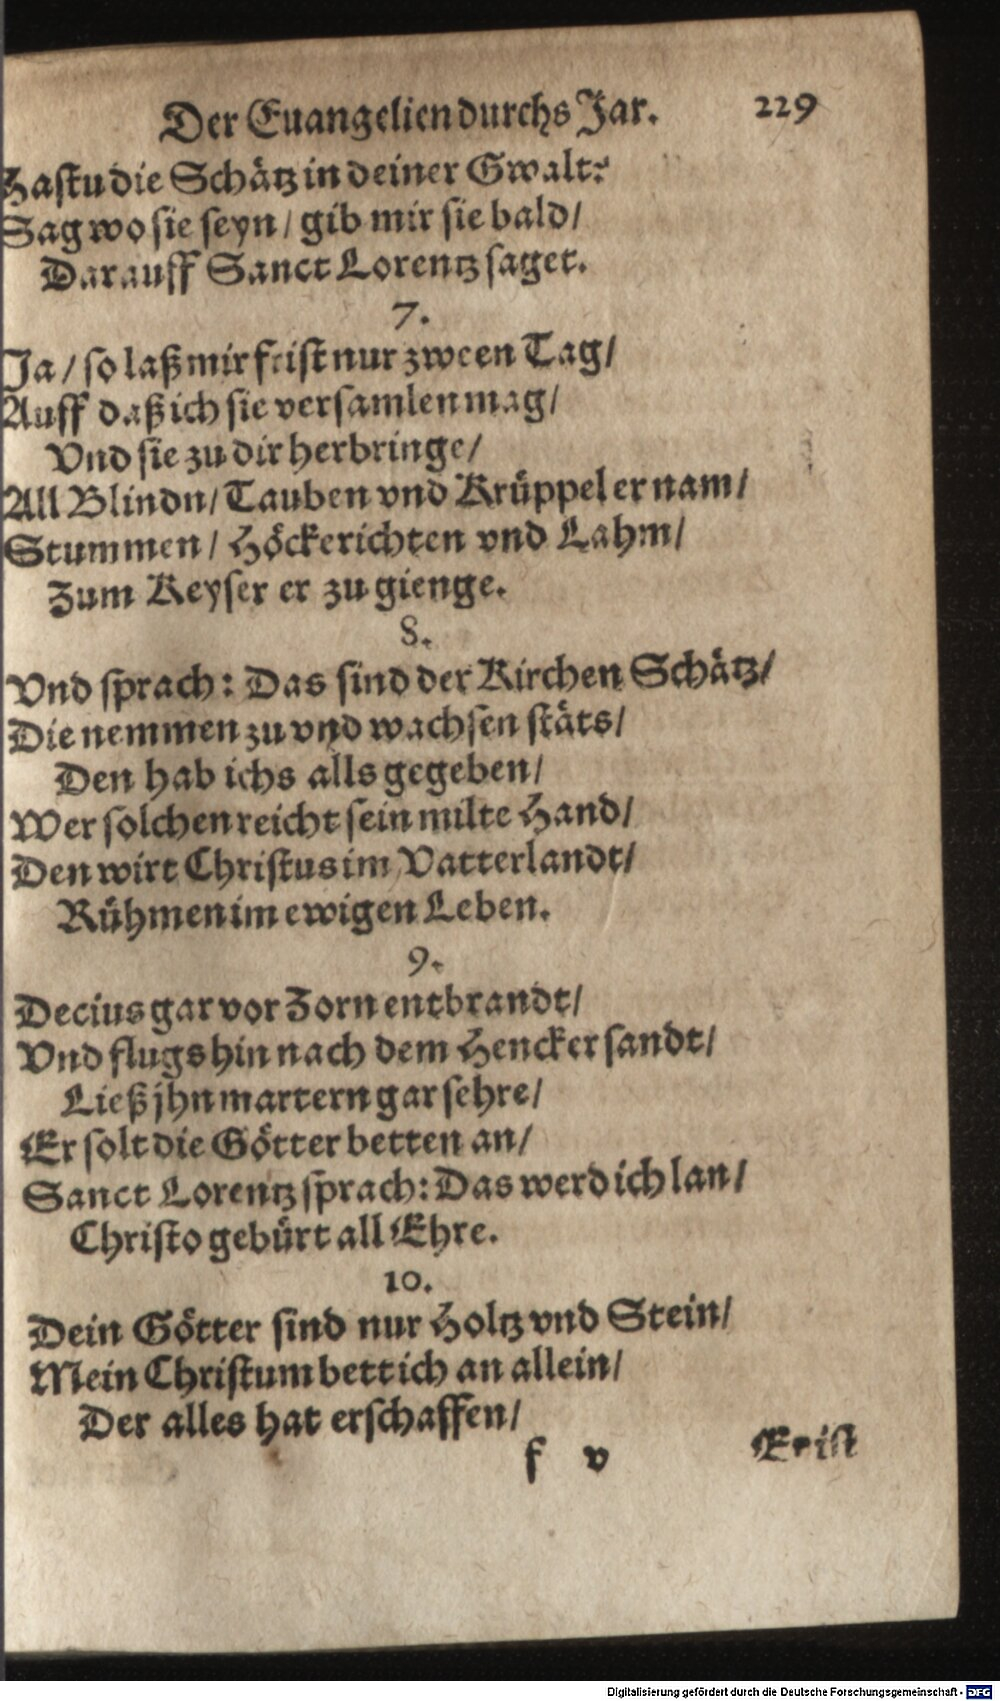 Der Euangelien durchs Jar. 229
Hastu die Schätz in deiner Gwalt?
Sag wo sie seyn / gib mir sie bald /
Darauff Sanct Lorentz saget.
7.
Ja / so laß mir frist nur zween Tag /
Auff daß ich sie versamlen mag /
Vnd sie zu dir herbringe /
All Blindn / Tauben vnd Krüppel er nam /
Stummen / Höckerichten vnd Lahm /
Zum Keyser er zu gienge.
8.
Vnd sprach: Das sind der Kirchen Schätz /
Die nemmen zu vnd wachsen stäts /
Den hab ichs alls gegeben /
Wer solchen reicht sein milte Hand /
Den wirt Christus im Vatterlandt /
Rühmen im ewigen Leben.
9.
Decius gar vor Zorn entbrandt /
Vnd flugs hin nach dem Hencker sandt /
Ließ jhn martern gar sehre /
Er solt die Götter betten an /
Sanct Lorentz sprach: Das werd ich lan /
Christo gebürt all Ehre.
10.
Dein Götter sind nur Holtz vnd Stein /
Mein Christum bett ich an allein /
Der alles hat erschaffen /
f v Er ist
Digitalisierung gefördert durch die Deutsche Forschungsgemeinschaft - DFG